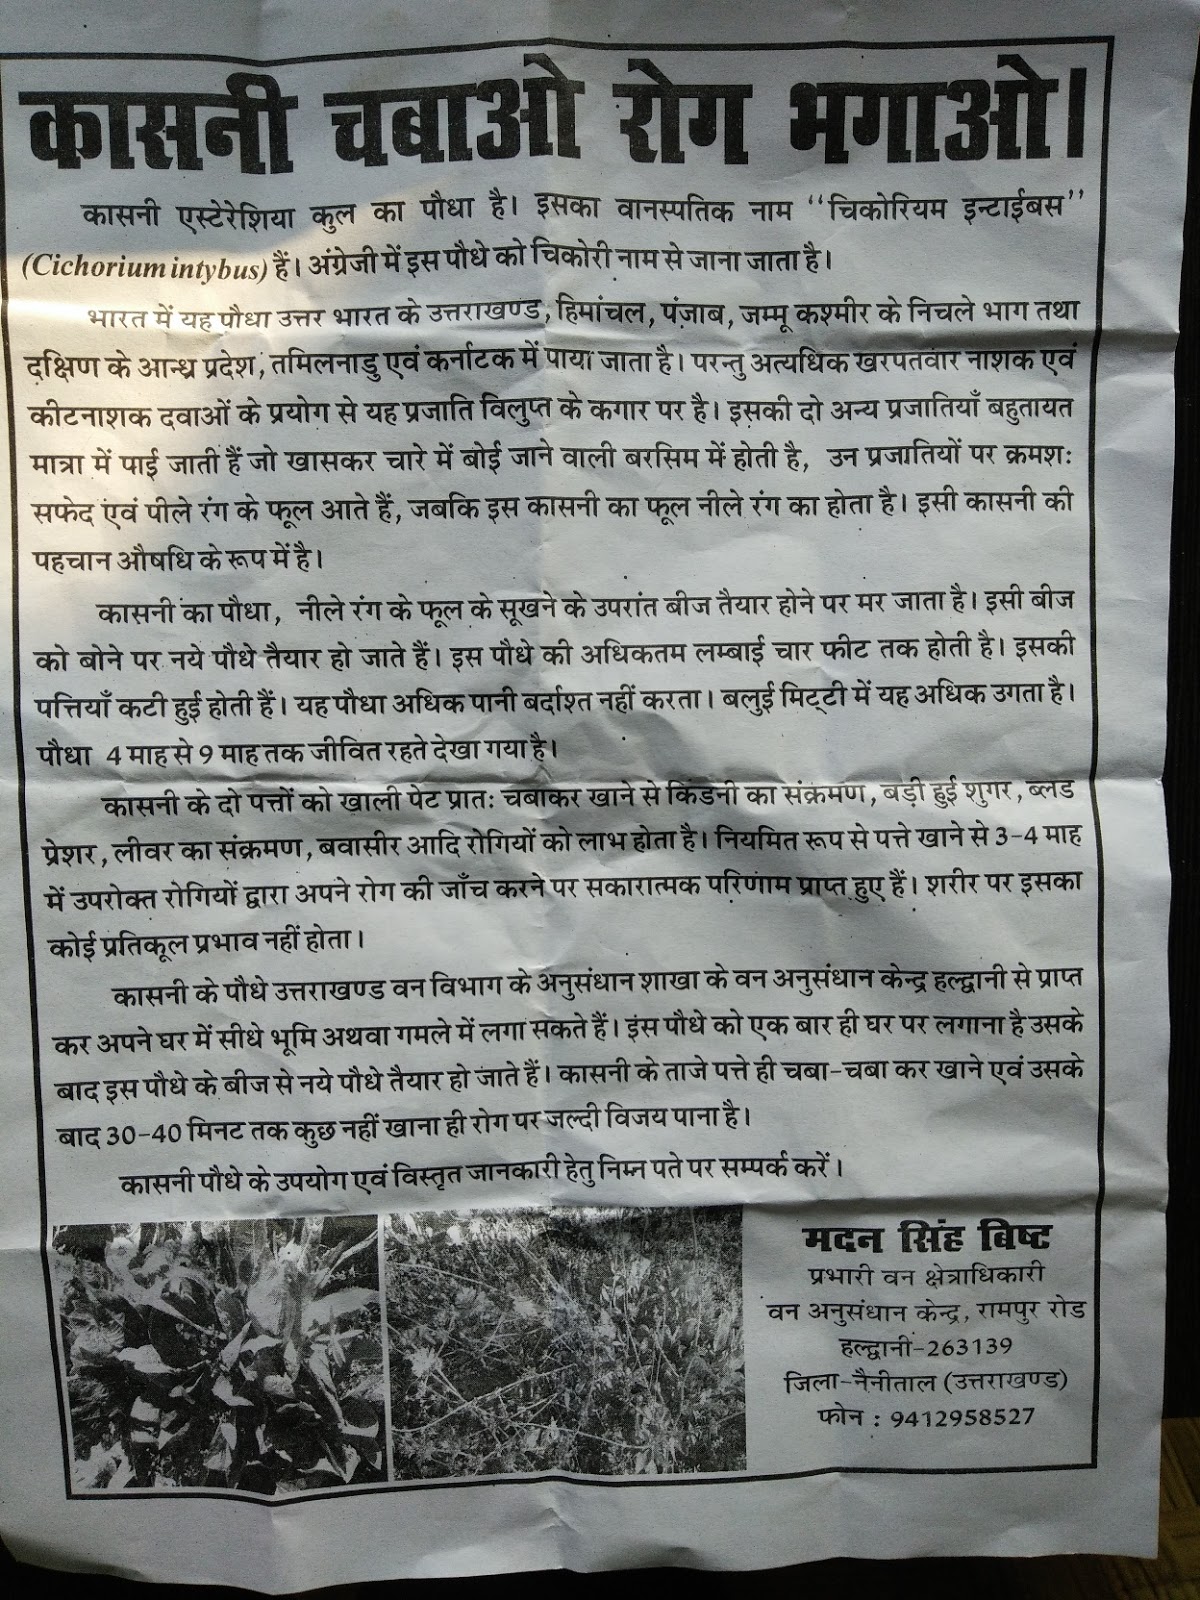 कासनी चबाओ रोग भगाओ।
कासनी एस्टेरेशिया कुल का पौधा है। इसका वानस्पतिक नाम ‘‘चिकोरियम इन्टाईबस’’
(Cichorium intybus) हैं। अंग्रेजी में इस पौधे को चिकोरी नाम से जाना जाता है।
भारत में यह पौधा उत्तर भारत के उत्तराखण्ड, हिमांचल, पंजाब, जम्मू कश्मीर के निचले भाग तथा
दक्षिण के आन्ध्र प्रदेश, तमिलनाडु एवं कर्नाटक में पाया जाता है। परन्तु अत्यधिक खरपतवार नाशक एवं
कीटनाशक दवाओं के प्रयोग से यह प्रजाति विलुप्त के कगार पर है। इसकी दो अन्य प्रजातियाँ बहुतायत
मात्रा में पाई जाती हैं जो खासकर चारे में बोई जाने वाली बरसिम में होती है, उन प्रजातियों पर क्रमशः
सफेद एवं पीले रंग के फूल आते हैं, जबकि इस कासनी का फूल नीले रंग का होता है। इसी कासनी की
पहचान औषधि के रूप में है।
कासनी का पौधा, नीले रंग के फूल के सूखने के उपरांत बीज तैयार होने पर मर जाता है। इसी बीज
को बोने पर नये पौधे तैयार हो जाते हैं। इस पौधे की अधिकतम लम्बाई चार फीट तक होती है। इसकी
पत्तियाँ कटी हुई होती हैं। यह पौधा अधिक पानी बर्दाश्त नहीं करता। बलुई मिट्टी में यह अधिक उगता है।
पौधा 4 माह से 9 माह तक जीवित रहते देखा गया है।
कासनी के दो पत्तों को खाली पेट प्रातः चबाकर खाने से किडनी का संक्रमण, बड़ी हुई शुगर, ब्लड
प्रेशर, लीवर का संक्रमण, बवासीर आदि रोगियों को लाभ होता है। नियमित रूप से पत्ते खाने से 3-4 माह
में उपरोक्त रोगियों द्वारा अपने रोग की जाँच करने पर सकारात्मक परिणाम प्राप्त हुए हैं। शरीर पर इसका
कोई प्रतिकूल प्रभाव नहीं होता।
कासनी के पौधे उत्तराखण्ड वन विभाग के अनुसंधान शाखा के वन अनुसंधान केन्द्र हल्द्वानी से प्राप्त
कर अपने घर में सीधे भूमि अथवा गमले में लगा सकते हैं। इस पौधे को एक बार ही घर पर लगाना है उसके
बाद इस पौधे के बीज से नये पौधे तैयार हो जाते हैं। कासनी के ताजे पत्ते ही चबा-चबा कर खाने एवं उसके
बाद 30-40 मिनट तक कुछ नहीं खाना ही रोग पर जल्दी विजय पाना है।
कासनी पौधे के उपयोग एवं विस्तृत जानकारी हेतु निम्न पते पर सम्पर्क करें।
मदन सिंह बिष्ट
प्रभारी वन क्षेत्राधिकारी
वन अनुसंधान केन्द्र, रामपुर रोड
हल्द्वानी-263139
जिला-नैनीताल (उत्तराखण्ड)
फोन : 9412958527